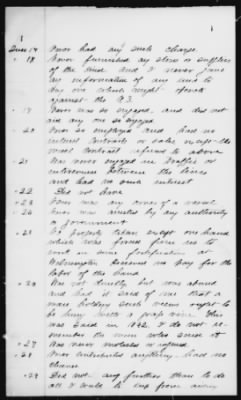 Ques 17 Never had any such charge.
" 18 Never furnished any stores or supplies
of the kind and I never gave
any information of any kind to
any one which might operate
against the U.S.
" 19 Never was so engaged, and did not
aid any one so engaged
" 20 Never so employed and had no
interest contracts or sales except the
contract referred to above
" 21 Was never engaged in traffic or
intercourse between the lines
and had no such interest
" 22 Did not have
" 23 Never was any of a vessel
" 24 Never was arrested by any authority
or government
" 25 No property taken except one hand
which was forced from us to
work on some fortification at
Wilmington Received no pay for the
labor of the hand
" 26 Was not directly but was abused
and had it said of me that a
man holding such views ought to
be hung with a grape vine This
was said in 1862. I do not re-
member the man who said it
" 27 Was never molested or injured
" 28 Never contributed anything. had no
chance
" 29 Did not any further than to do
all I could to keep from